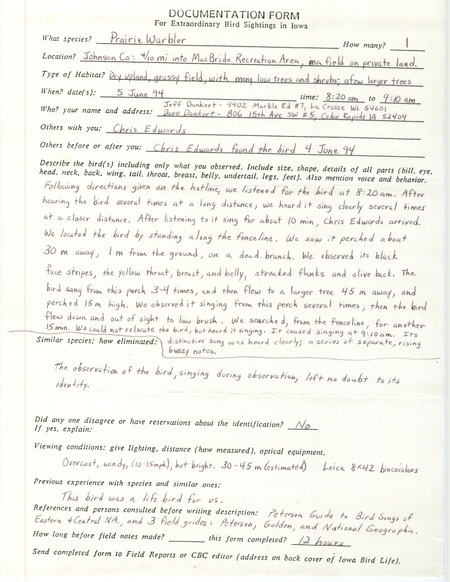 DOCUMENTATION FORM
For Extraordinary Bird Sightings in Iowa
What species? Prairie Warbler How many? 1
Location? Johnson Co: 4/10 mi into MacBride Recreation Area, in a field on private land.
Type of Habitat? Dry upland, grassy field, with many low trees and shrubs; a few larger trees
When? date(s): 5 June 94 time: 8:20 am to 9:10 am
Jeff Dankert - 4402 Markle Rd #7, La Crosse WI 54601
Who? your name and address: Dave Dankert - 806 15th Ave SW #5, Cedar Rapids IA 52404
Others with you: Chris Edwards
Others before or after you: Chris Edwards found the bird 4 June 94
Describe the bird(s) including only what you observed. Include size, shape, details of all parts (bill, eye,
head, neck, back, wing, tail, throat, breast, belly, undertail, legs, feet). Also mention voice and behavior.
Following directions given on the hotline, we listened for the bird at 8:20 am. After
hearing the bird several times at a long distance, we heard it sing clearly several times
at a closer distance. After listening to it sing for about 10 min, Chris Edwards arrived.
We located the bird by standing along the fenceline. We saw it perched about
30 m away, 1 m from the ground, on a dead branch. We observed its black
face stripes, the yellow throat, breast, and belly, streaked flanks and olive back. The
bird sang from this perch 3-4 times, and then flew to a larger tree 45 m away, and
perched 15 m high. We observed it singing from this perch several times, then the bird
flew down and out of sight to low brush. We searched, from the fenceline, for another
15 min. We could not relocate the bird, but heard it singing. It ceased singing at 9:10 am. Its
Similar species; how eliminated: distinctive song was heard clearly; a series of separate, rising
buzzy notes.
The observation of the bird, singing during observation, left no doubt to its
identity.
Did any one disagree or have reservations about the identification? No
If yes, explain:
Viewing conditions: give lighting, distance (how measured), optical equipment.
Overcast, windy, (10-15mph), but bright. 30-45 m (estimated) Leica 8x42 binoculars
Previous experience with species and similar ones:
This bird was a life bird for us.
References and persons consulted before writing description: Peterson Guide to Bird Songs of
Eastern & Central NA, and 3 field guides: Peterson, Golden, and National Geographic.
How long before field notes made? this form completed? 12 hours
Send completed form to Field Reports or CBC editor (address on back cover of Iowa Bird Life).